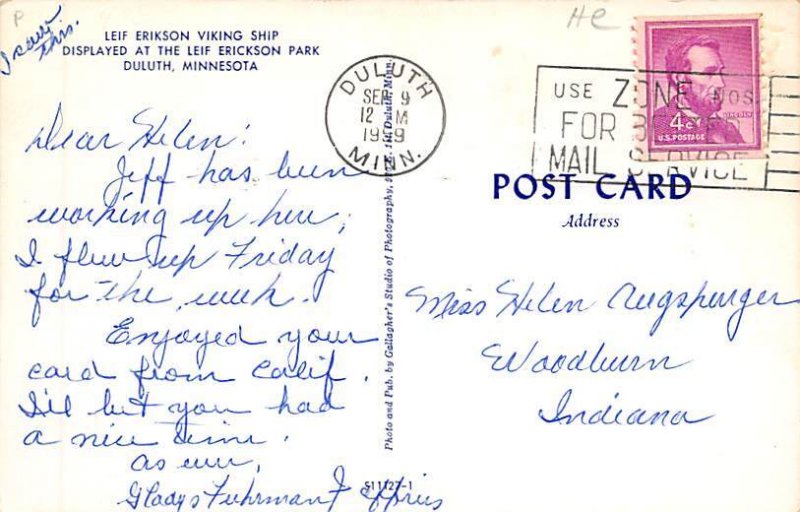 P
I saw
this.
LEIF ERIKSON VIKING SHIP
DISPLAYED AT THE LEIF ERICKSON PARK
DULUTH, MINNESOTA
Dear Helen:
Jeff has been
working up here;
I flew up Friday
for the week.
Enjoyed your
card from Calif.
I'll bet you had
a nice time.
As ever,
Gladys Fuhrman Jeffries
DULUTH
SEP 9
12 M
1959
MINN.
Photo and Pub. by Gallagher's Studio of Photography, Duluth, Minn.
S11127-1
HC
USE ZONE NOS
FOR
MAIL SERVICE
LINCOLN
4¢
U.S. POSTAGE
POST CARD
Address
Miss Helen Augsburger
Woodburn
Indiana